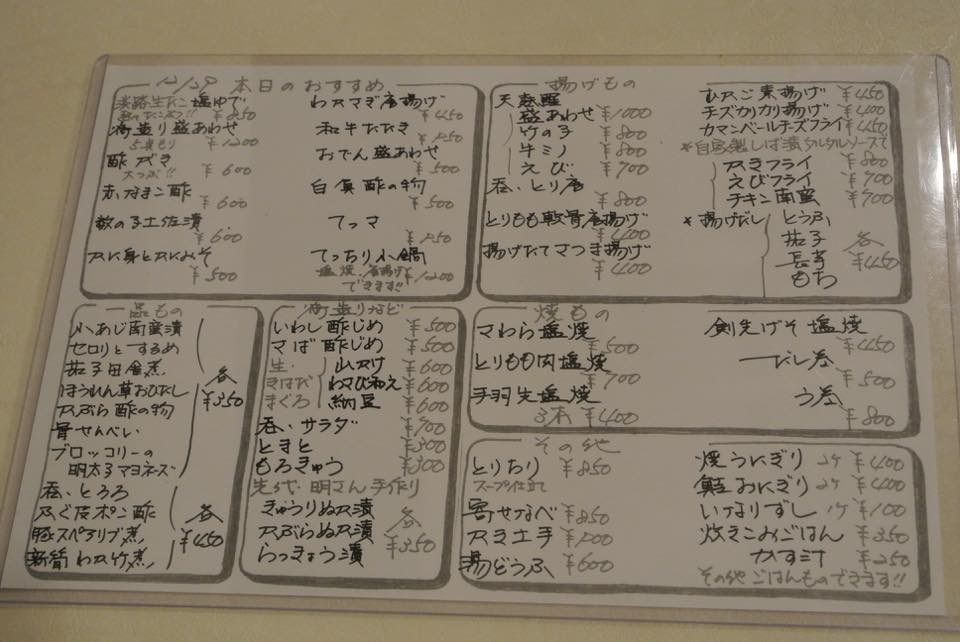 12/29 本日のおすすめ
淡路生だこ塩ゆで
¥850
お造り盛あわせ
5点もり ¥1200
酢がき
大つぶ!! ¥600
赤なまこ酢
¥600
数の子土佐漬
¥600
かに身とかにみそ
¥500
わかさぎ唐揚げ
¥450
和牛たたき
おでん盛あわせ
¥500
白魚酢の物
¥500
てっさ
てっちり小鍋
塩焼、唐揚げ ¥1200
できます!!
揚げもの
天麩羅
盛あわせ ¥1000
竹の子 ¥800
牛ミノ ¥800
えび ¥700
呑、とり唐
¥800
とりもも軟骨唐揚げ
¥400
揚げたてさつま揚げ
¥400
チズカリカリ揚げ ¥400
カマンベールチーズフライ ¥450
*自家製しば漬タルタルソースで
かきフライ ¥800
えびフライ ¥700
チキン南蛮 ¥700
*揚げだし
とうふ
茄子
長芋
もち
各
¥450
一品もの
小あじ南蛮漬
セロリとするめ
茄子田舎煮
ほうれん草おひたし
かぶら酢の物
骨せんべい
ブロッコリーの
明太子マヨネーズ
各
¥350
呑、とろろ
ふぐ皮ポン酢
豚スペアリブ煮
新筍わかめ煮
各
¥450
お造りなど
いわし酢じめ ¥500
さば酢じめ ¥500
生
きはだ
まぐろ
山かけ ¥600
わさび和え ¥600
納豆 ¥600
呑、サラダ ¥700
ときと ¥300
もろきゅう ¥300
先代・明さん手作り
きゅうりぬか漬
かぶらぬか漬
らっきょう漬
各
¥350
焼もの
さわら塩焼
¥500
とりもも肉塩焼
¥700
手羽先塩焼
3本 ¥400
剣先げそ塩焼
¥450
だし巻
¥500
う巻
¥800
その他
とりちり ¥850
スープ仕立て
寄せなべ ¥850
かき土手
湯どうふ ¥600
焼おにぎり 2ケ ¥400
鮭おにぎり 2ケ ¥400
いなりずし 1ケ ¥100
炊きこみごはん ¥350
かす汁 ¥250
その他ごはんものできます!!